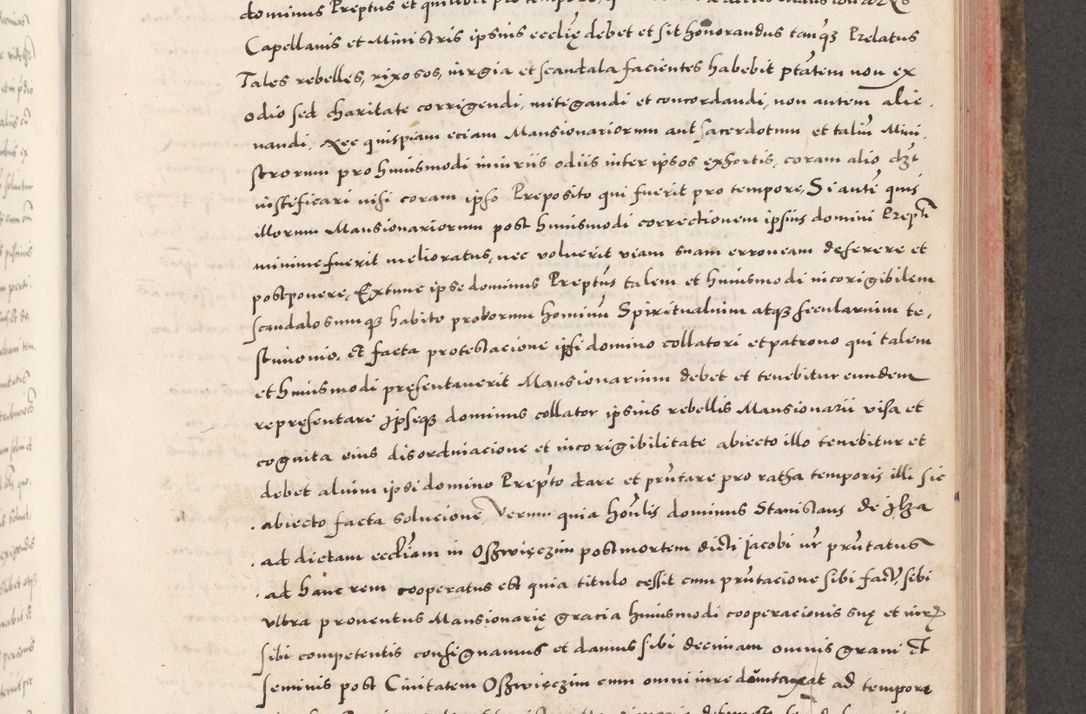 dominus Preptus et
Capellanis et Ministris ipsius ecclię debet et sit honorandus tanqȝ Prelatus
Tales rebelles, rixosos, iurgia et scandala facientes habebit ptatem non ex
odio sed charitate corrigendi, mitigandi et concordandi, non autem alie,
nandi, Nec quispiam eciam Mansionariorum aut sacerdotum et taliu Mini,
strorum pro huiusmodi iniuriis odiis inter ipsos exhortis, coram alio dȝt
iustificari nisi coram ipso Preposito qui fuerit pro tempore, Si aute quis
illorum Mansionariorum post huiusmodi correctionem ipsius domini Prepti
minime fuerit melioratus, nec voluerit viam suam erroneam deserere et
postponere, Extunc ipse dominus Preptus talem et huiusmodi incorigibilem
scandalosumqȝ habito proborum hominu Spiritualium atqȝ secularium te,
stimonio, Et facta protestacione ipsi domino collatori et patrono qui talem
et huiusmodi presentauerit Mansionarium debet et tenebitur eundem
representare Ipseqȝ dominus collator ipsius rebellis Mansionarii visa et
cognita eius disordinacione et incorigibilitate abiecto illo tenebitur et
debet alium ipsi domino Prepto dare et prntare pro ratha temporis illi sic
abiecto facta solucione, Verum quia honlis dominus Stanislaus de Ilza
ad dictam eccliam in Oszwięczim post mortem dicti Jacobi ur prntatus
ad hanc rem cooperatus est quia titulo cessit cum prntacione sibi facta, sibi
vltra prouentus Mansionarię gracia huiusmodi cooperacionis suę et
sibi competentis consignamus et damus sibi decimam omnis grani Et
seminis post Ciuitatem Oszwięczim cum omni iure duntaxat ad tempora